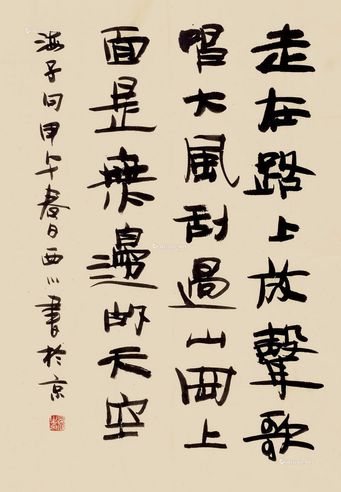 走在路上放聲歌
唱大風刮過山岡上
面是無邊的天空
海子句甲午春日西川書於京